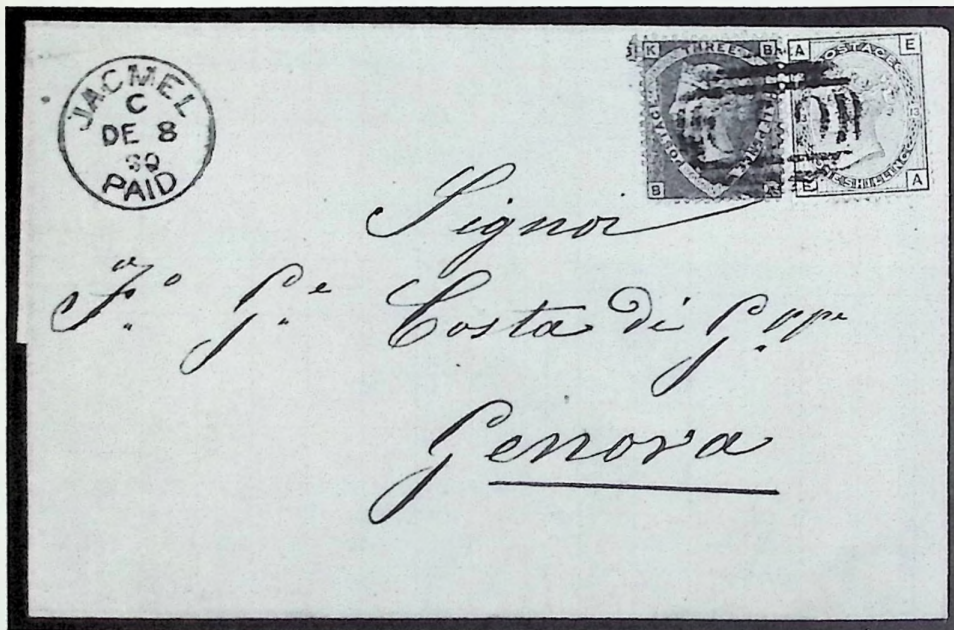 JACMEL
C
DE 8
80
PAID
K THREE B
POSTAGE
B
A POSTAGE E
13
E ONE SHILLING A
Signor
F.co G.e Costa di G.ppe
Genova